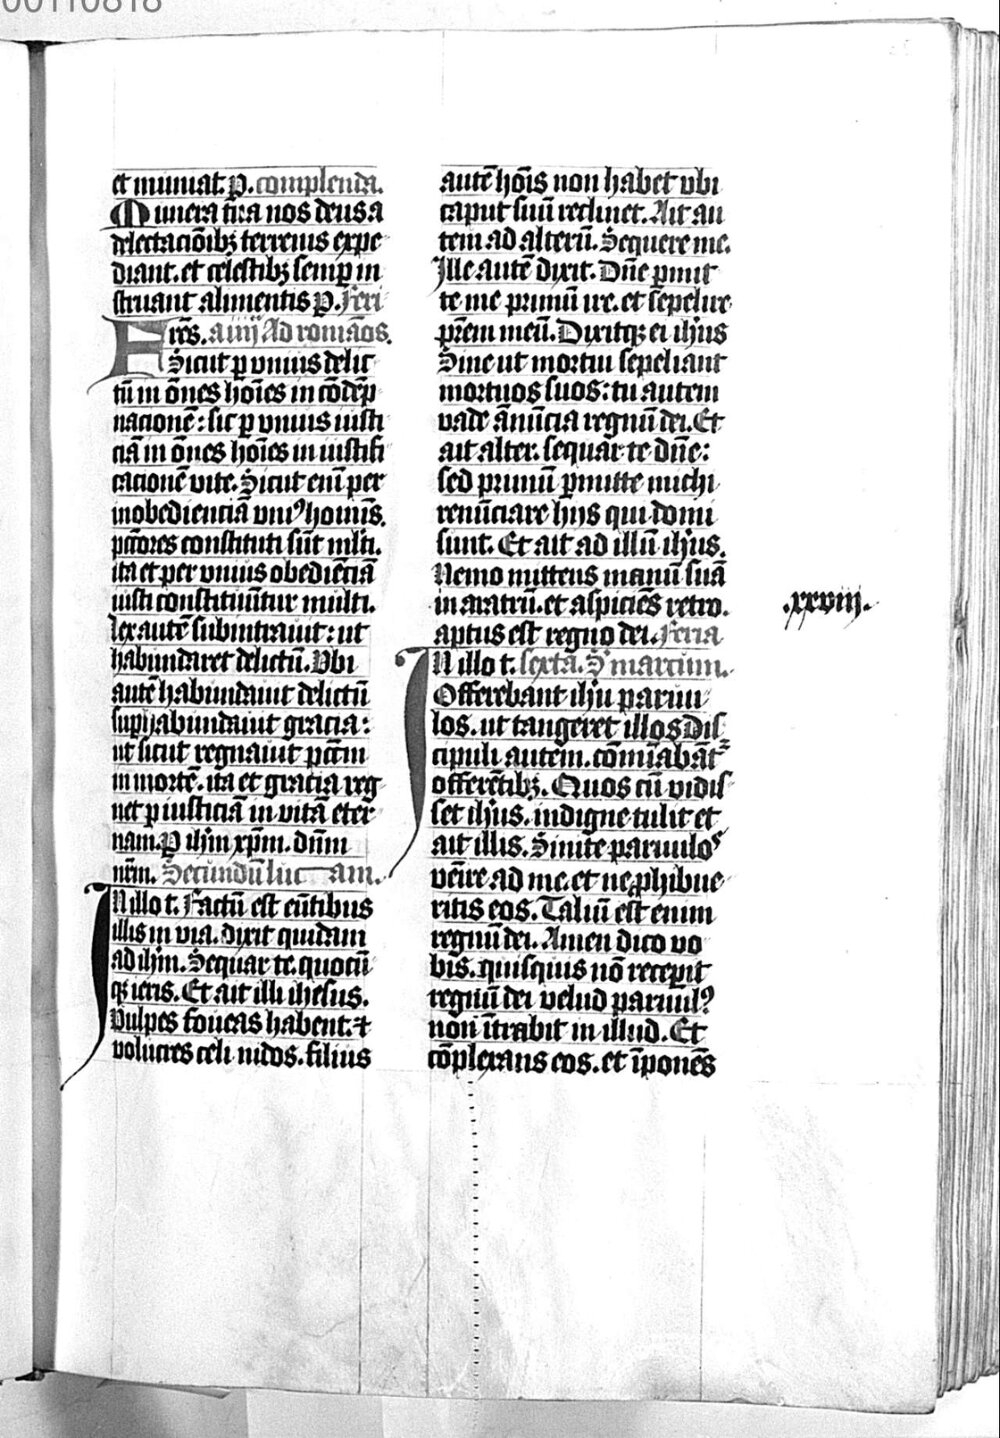 00110818
et muniat. p. complenda.
Munera t̄ra nos deus a
delectac̄oībꝫ terrenis expe
diant. et celestibꝫ semꝑ in
struant alimentis ꝑ. Feri
Fr̄es. a iiij Ad romāos.
Sicut ꝑ vnius delic
tū in ōnes hoīes in cōdēp
nacionē: sic ꝑ vnius iusti
ciā in ōnes hoīes in iustifi
cacionē vite. Sicut enī per
inobedienciā vniꝰ hominīs.
pctōres constituti sūt ml̄ti.
ita et per vnius obediēciā
iusti constituūtur multi.
lex autē subintrauit: ut
habundaret delictū. Vbi
autē habundauit delictū
suꝑhabundauit gracia:
ut sicut regnauit pctm̄
in mortē. ita et gracia reg
net ꝑ iusticiā in vitā eter
nam. P ih̄m xp̄m. dn̄m
nr̄m. Secundū luc am.
IN illo t. Factū est eūtibus
illis in via. dixit quidam
ad ih̄m. Sequar te quocū
qꝫ ieris. Et ait illi ihesus.
Vulpes foueas habent. ⁊
volucres celi nidos. filius
autē hoīs non habet vbi
caput suū reclinet. Ait au
tem ad alterū. Sequere me.
Ille autē dixit. Dn̄e ꝑmit
te me primū ire. et sepelire
pr̄em meū. Dixitqꝫ ei ih̄us
Sine ut mortui sepeliant
mortuos suos: tu autem
vade ānūcia regnū dei. Et
ait alter. sequar te dn̄e:
sed primū ꝑmitte michi
renūciare hijs qui domi
sunt. Et ait ad illū ih̄us.
Nemo mittens manū suā
in aratrū. et aspiciēs retro.
aptus est regno dei. Feria
IN illo t. sexta. S marcum.
Offerebant ih̄u paruu
los. ut tangeret illos Dis
cipuli autem. cōmīabāt᷑
offerētibꝫ. Quos cū vidis
set ih̄us. indigne tulit et
ait illis. Sinite paruulos
venire ad me. et ne ꝓhibue
ritis eos. Taliū est enim
regnū dei. Amen dico vo
bis. quisquis nō recepit
regnū dei velud paruulꝰ
non ītrabit in illud. Et
cōplexans eos. et īponēs
.xxviij.